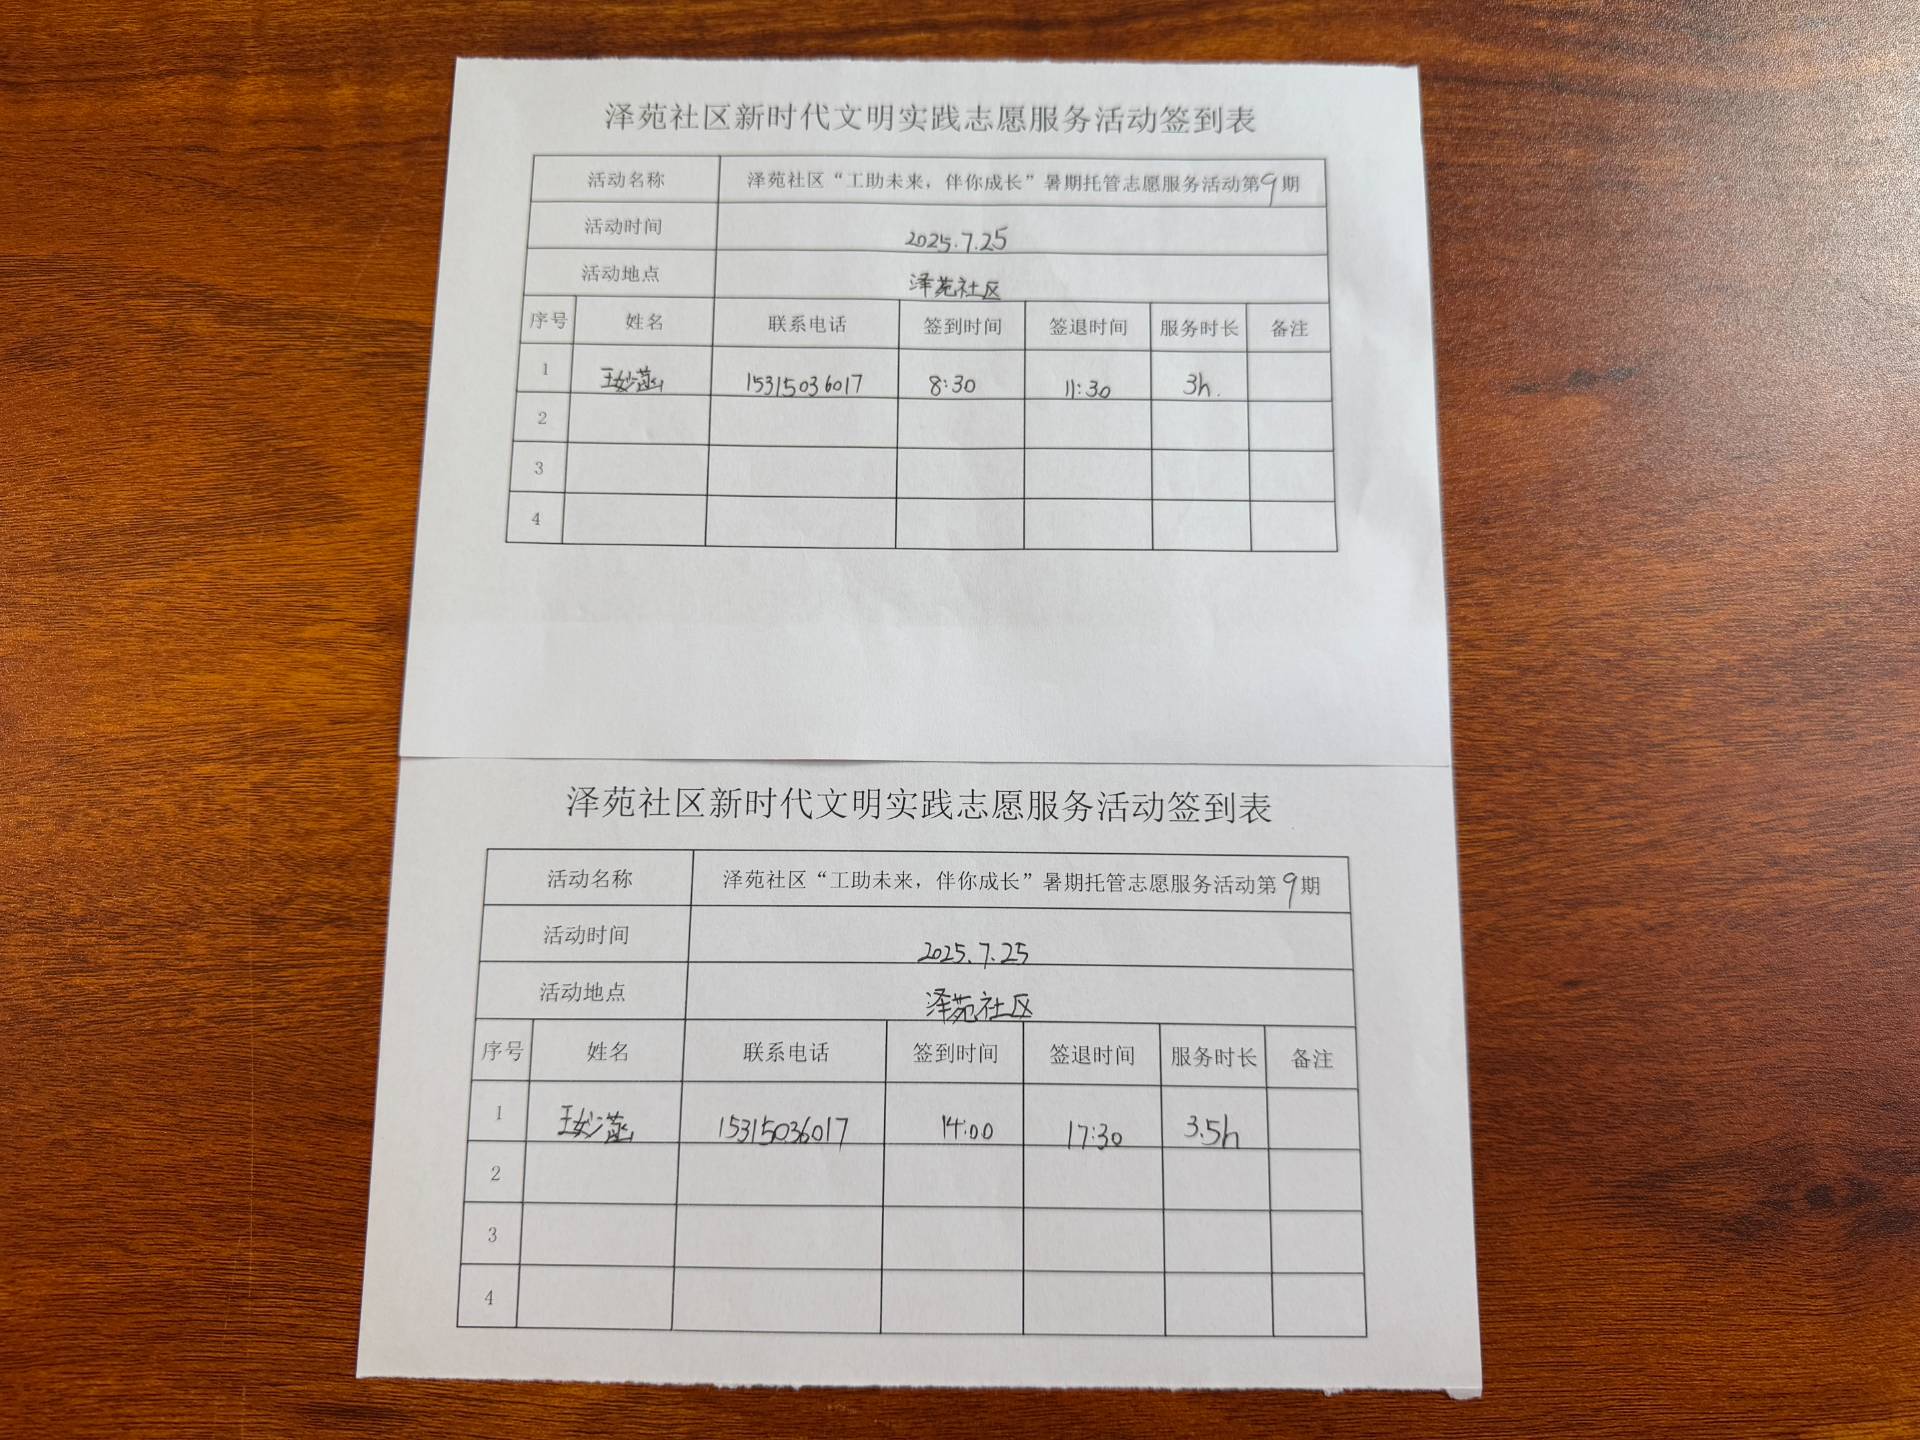 泽苑社区新时代文明实践志愿服务活动签到表
活动名称 泽苑社区“工助未来，伴你成长”暑期托管志愿服务活动第9期
活动时间 2025.7.25
活动地点 泽苑社区
序号 姓名 联系电话 签到时间 签退时间 服务时长 备注
1 王妙菡 15315036017 8:30 11:30 3h.
2
3
4
泽苑社区新时代文明实践志愿服务活动签到表
活动名称 泽苑社区“工助未来，伴你成长”暑期托管志愿服务活动第9期
活动时间 2025.7.25
活动地点 泽苑社区
序号 姓名 联系电话 签到时间 签退时间 服务时长 备注
1 王妙菡 15315036017 14:00 17:30 3.5h
2
3
4